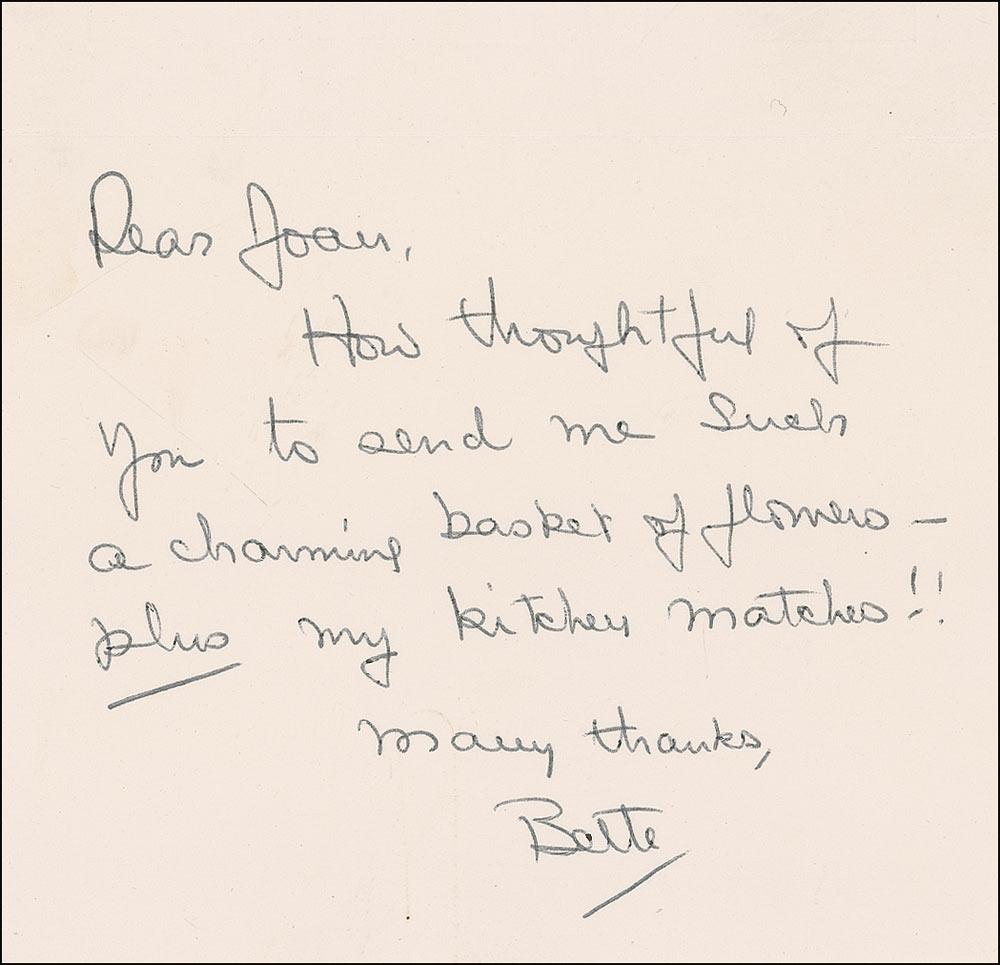 Dear Joan,
How thoughtful of
you to send me such
a charming basket of flowers –
plus my kitchen matches!!
Many thanks,
Bette